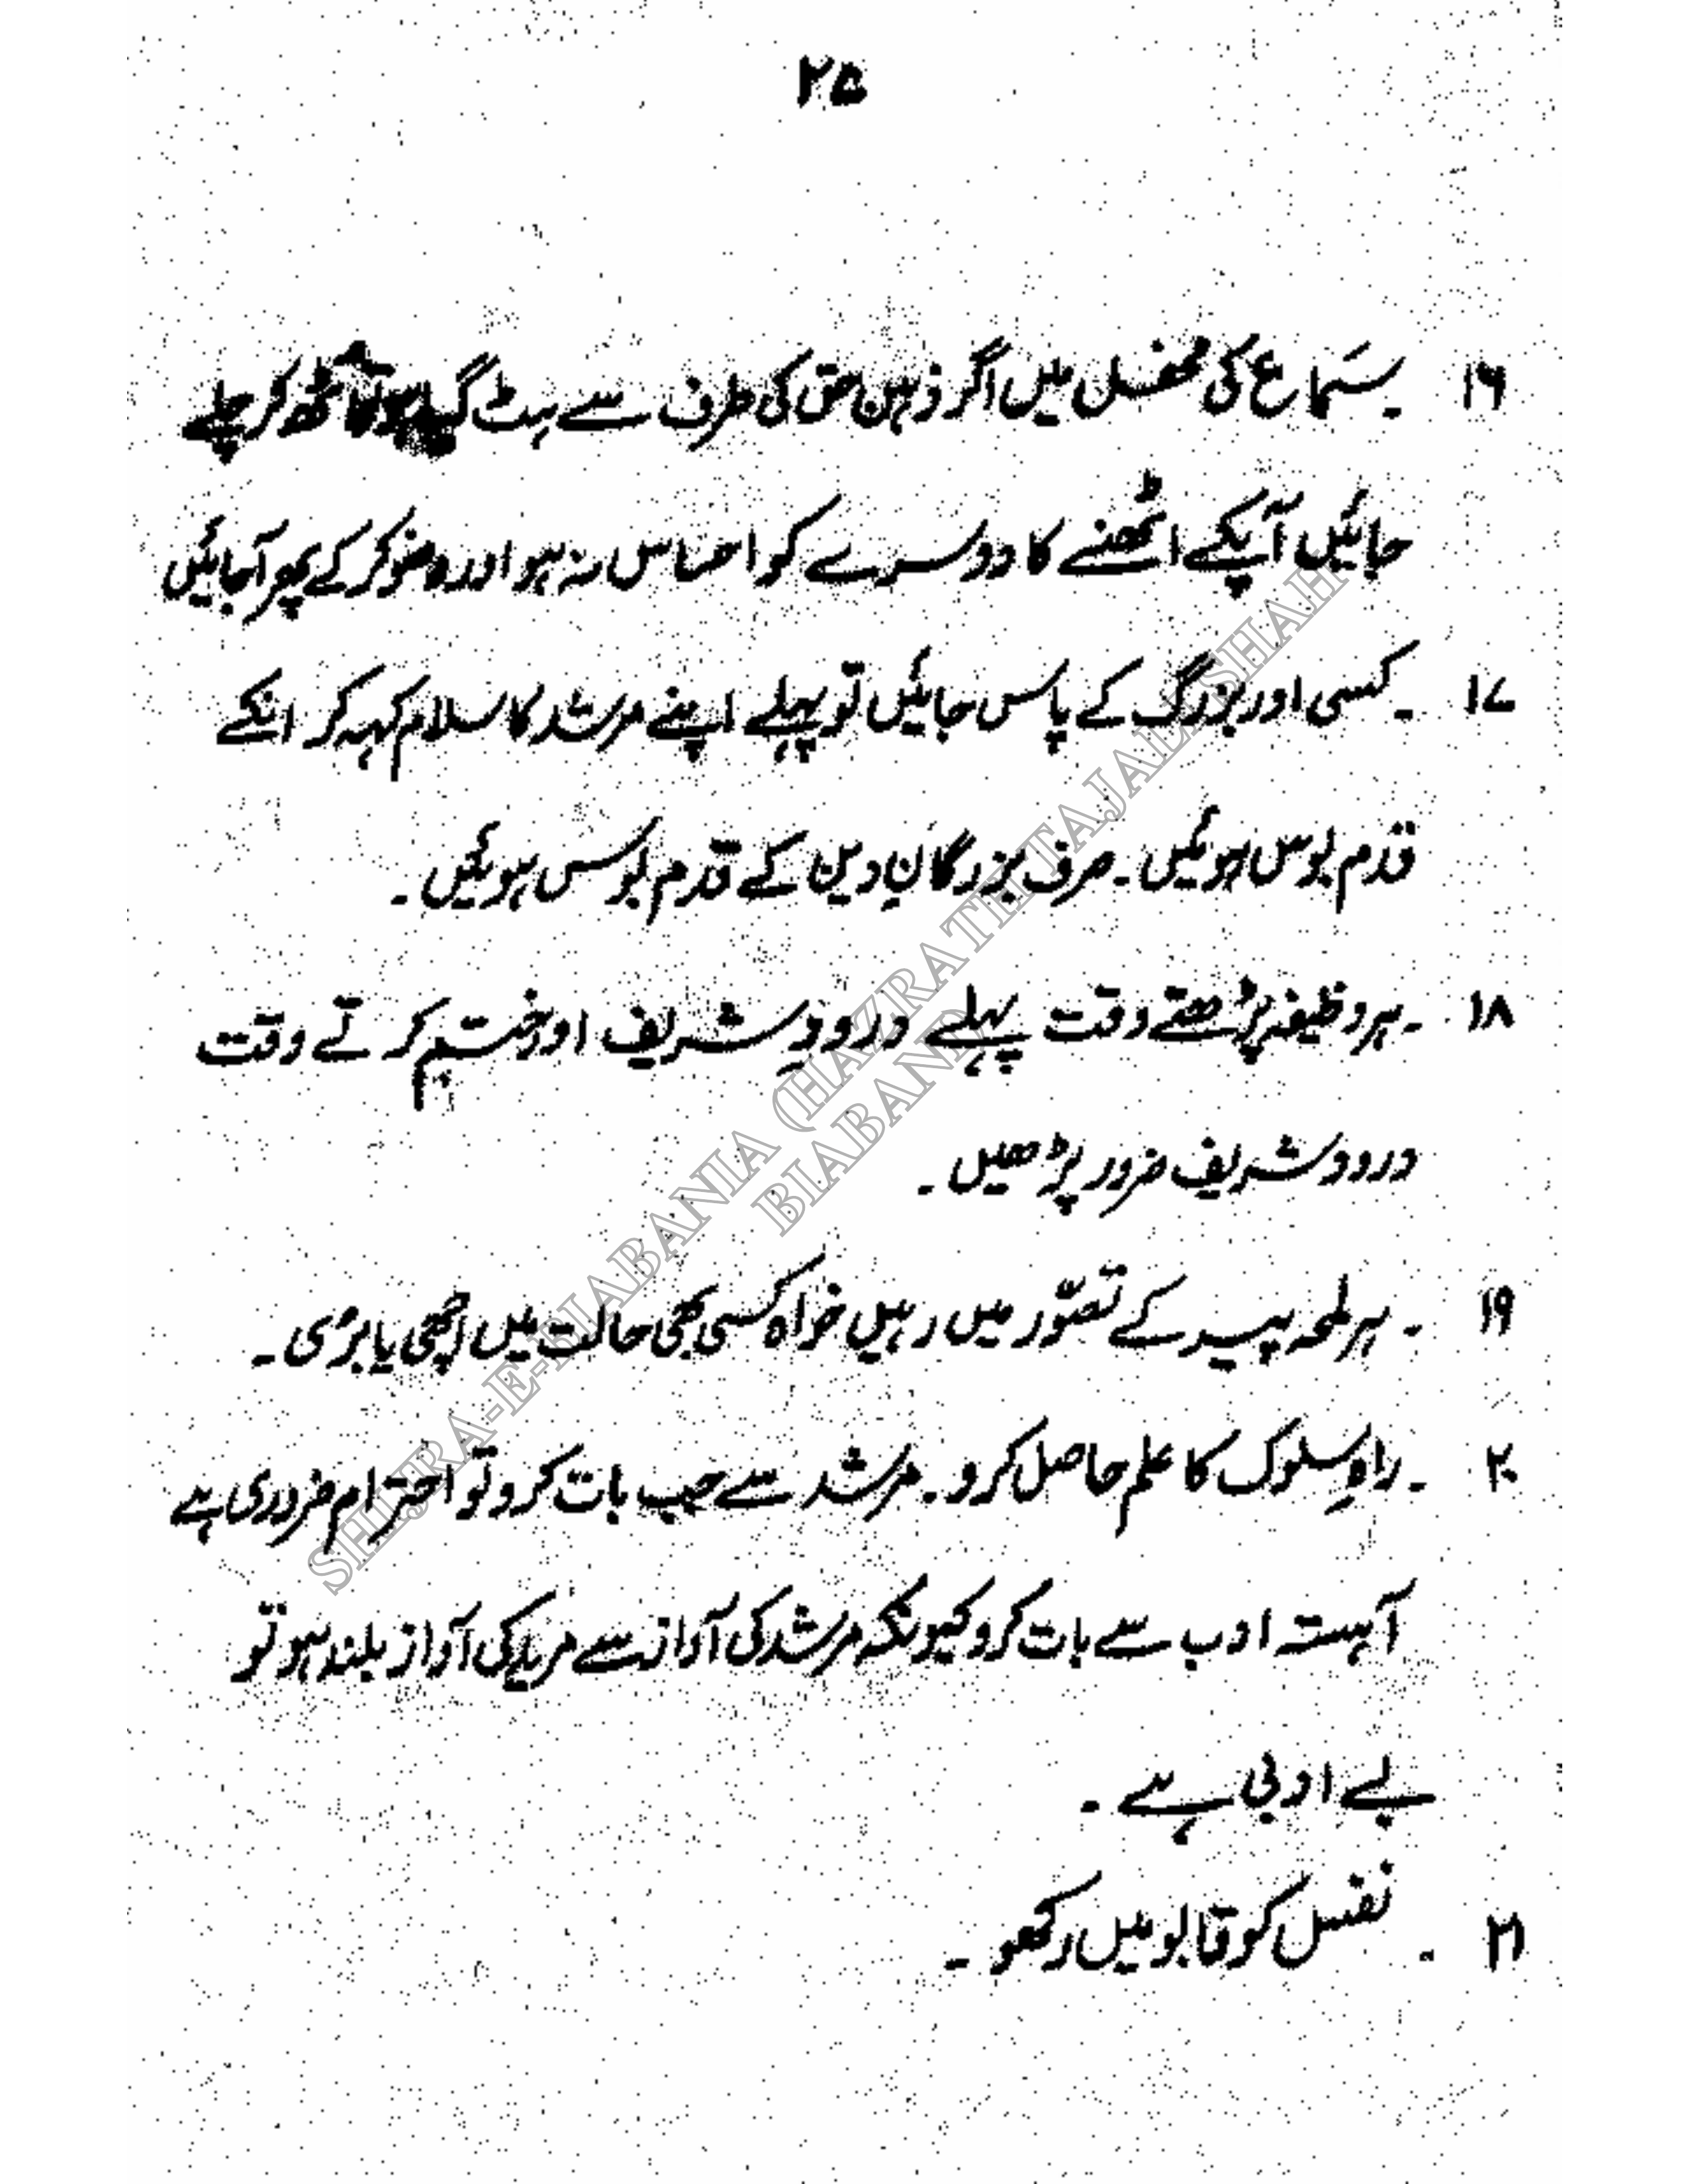 ۲۵
۱۶ ۔ سَماع کی محفل میں اگر ذہن حق کی طرف سے ہٹ گیا ہو تو اٹھ کر چلے
جائیں آپکے اٹھنے کا دوسرے کو احساس نہ ہو اور وضو کر کے پھر آجائیں
۱۷ ۔ کسی اور بزرگ کے پاس جائیں تو پہلے اپنے مرشد کا سلام کہہ کر انکے
قدم بوس ہوئیں ۔ صرف بزرگانِ دین کے قدم بوس ہوئیں ۔
۱۸ ۔ ہر وظیفہ پڑھتے وقت پہلے درودِ شریف اور ختم کرتے وقت
درود شریف ضرور پڑھیں ۔
۱۹ ۔ ہر لمحہ پیر کے تصوّر میں رہیں خواہ کسی بھی حالت میں اچھی یا بری ۔
۲۰ ۔ راہِ سلوک کا علم حاصل کرو ۔ مرشد سے جب بات کرو تو احترام ضروری ہے
آہستہ ادب سے بات کرو کیونکہ مرشد کی آواز سے مرید کی آواز بلند ہو تو
بے ادبی ہے ۔
۲۱ ۔ نفس کو قابو میں رکھو ۔
SHIJRA-E-BIABANIA (HAZRATH TAJALI SHAH
BIABANI)